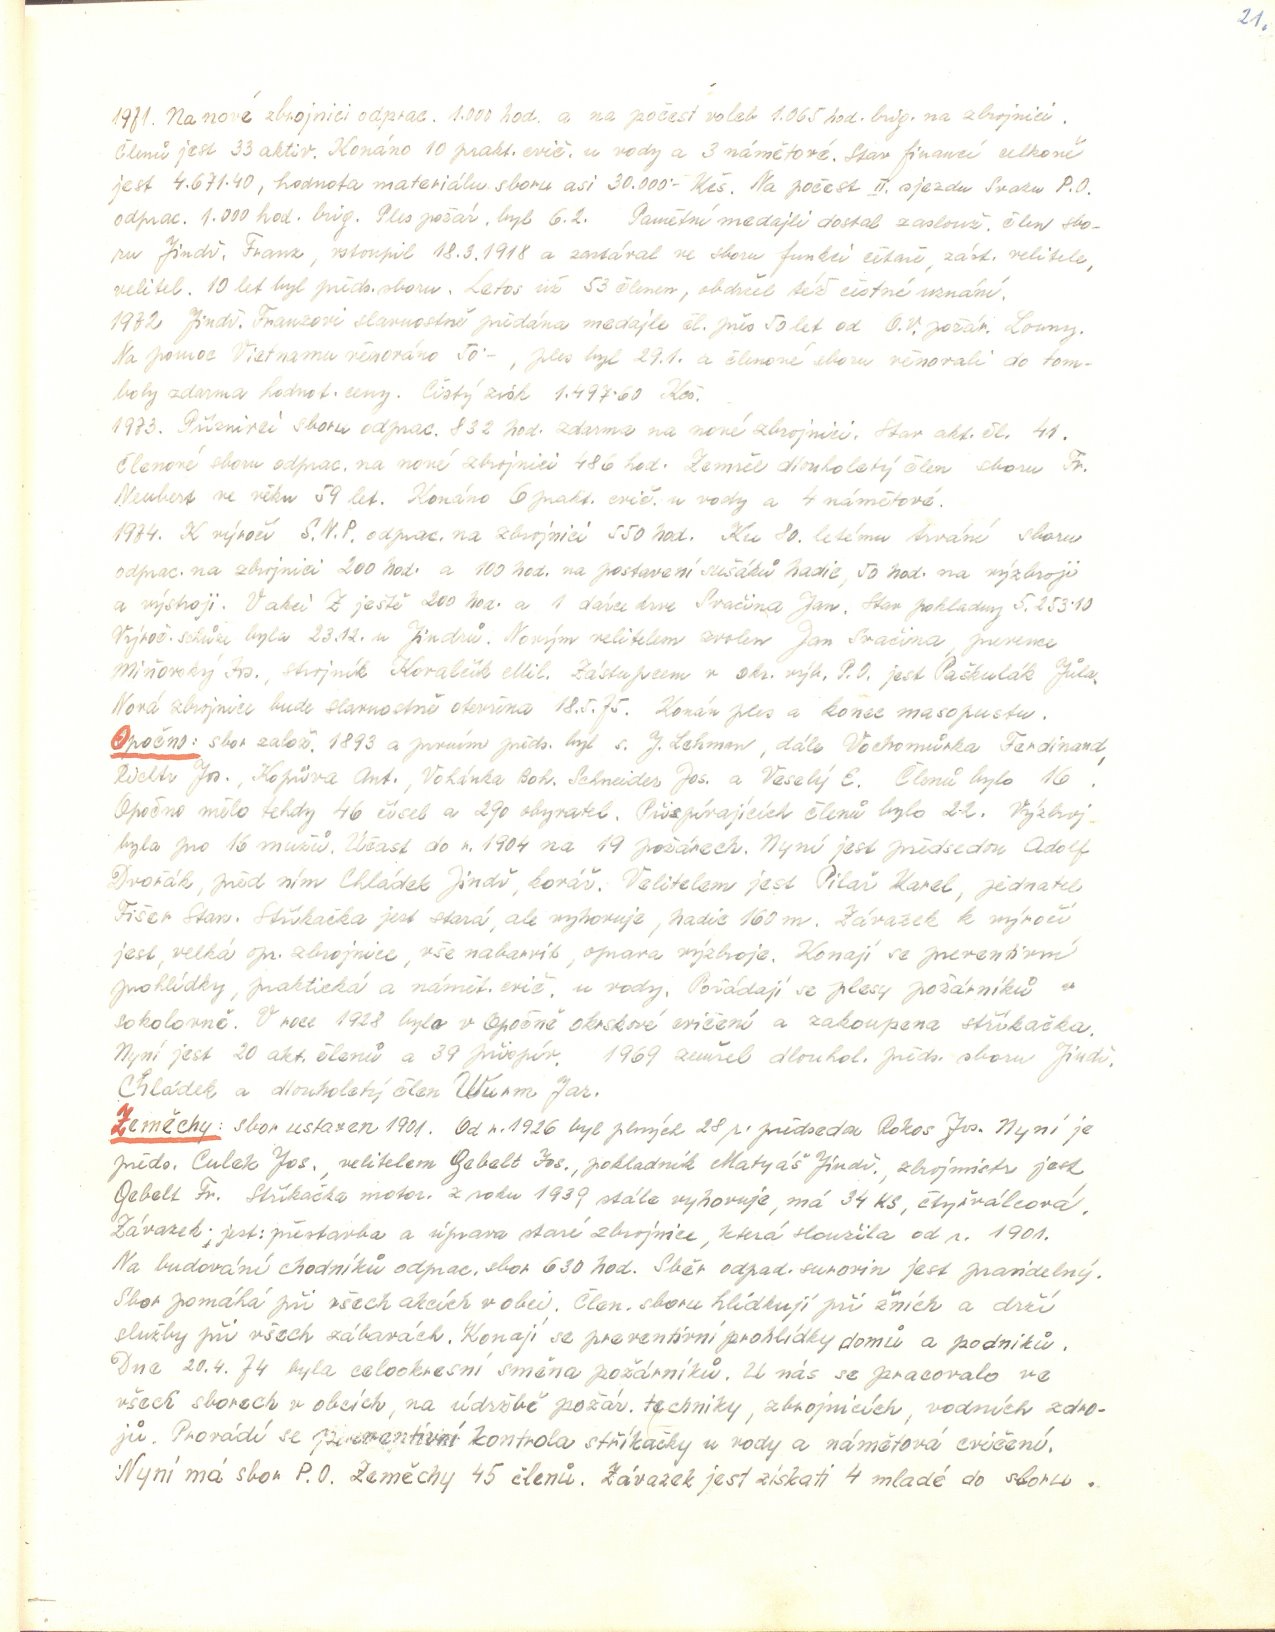 21.
1971. Na nové zbrojnici odprac. 1.000 hod. a na počest voleb 1.065 hod. brig. na zbrojnici.
Členů jest 33 aktiv. Konáno 10 prakt. cvič. u vody a 3 námětové. Stav financí celkově
jest 4.671.40, hodnota materiálu sboru asi 30.000.- Kčs. Na počest II. sjezdu Svazu P.O.
odprac. 1.000 hod. brig. Ples požár. byl 6.2. Pamětní medajli dostal zaslouž. člen sbo-
ru Jindř. Franz, vstoupil 18.3.1918 a zastával ve sboru funkci četaře, zást. velitele,
velitel. 10 let byl předs. sboru. Letos už 53 členem, obdržel též čestné uznání.
1972 Jindř. Franzovi slavnostně předána medajle čl. přes 50 let od O.V. požár. Louny.
Na pomoc Vietnamu věnováno 50.-, ples byl 29.1. a členové sboru věnovali do tom-
boly zdarma hodnot. ceny. Čistý zisk 1.497.60 Kčs.
1973. Příznivci sboru odprac. 832 hod. zdarma na nové zbrojnici. Stav akt. čl. 41.
Členové sboru odprac. na nové zbrojnici 486 hod. Zemřel dlouholetý člen sboru Fr.
Neubert ve věku 59 let. Konáno 6 prakt. cvič. u vody a 4 námětové.
1974. K výročí S.N.P. odprac. na zbrojnici 550 hod. Ku 80. letému trvání sboru
odprac. na zbrojnici 200 hod. a 100 hod. na postavení sušáků hadic, 50 hod. na výzbroji
a výstroji. V akci Z ještě 200 hod. a 1 dárce krve Svačina Jan. Stav pokladny 5.253.10
Výroč. schůze byla 23.12. u Jindrů. Novým velitelem zvolen Jan Svačina, prevence
Miňovský Jos., strojník Kovalčík Mil. Zástupcem v okr. výb. P.O. jest Paškulák Jůla.
Nová zbrojnice bude slavnostně otevřena 18.5.75. Konán ples a konec masopustu.
Opočno: sbor založ. 1893 a prvním předs. byl s. J. Lehman, dále Vochomůrka Ferdinand,
Richtr Jos., Kopřiva Ant., Vokánka Boh. Schneider Jos. a Veselý E. Členů bylo 16.
Opočno mělo tehdy 46 čísel a 290 obyvatel. Přispívajících členů bylo 22. Výzbroj
byla pro 16 mužů. Účast do r. 1904 na 19 požárech. Nyní jest předsedou Adolf
Dvořák, před ním Chládek Jindř, kovář. Velitelem jest Pilař Karel, jednatel
Fišer Stan. Stříkačka jest stará, ale vyhovuje, hadic 160 m. Závazek k výročí
jest, velká opr. zbrojnice, vše nabarvit, oprava výzbroje. Konají se preventivní
prohlídky, praktická a námět. cvič. u vody. Pořádají se plesy požárníků v
sokolovně. V roce 1928 bylo v Opočně okrskové cvičení a zakoupena stříkačka.
Nyní jest 20 akt. členů a 39 přispív. 1969 zemřel dlouhol. předs. sboru Jindř.
Chládek a dlouholetý člen Wurm Jar.
Zeměchy: sbor ustaven 1901. Od r. 1926 byl plných 28 r. předseda Rokos Jos. Nyní je
předs. Culek Jos., velitelem Gebelt Jos., pokladník Matyáš Jindř., zbrojmistr jest
Gebelt Fr. Stříkačka motor. z roku 1939 stále vyhovuje, má 34 KS, čtyřválcová.
Závazek: jest: přestavba a úprava staré zbrojnice, která sloužila od r. 1901.
Na budování chodníků odprac. sbor 630 hod. Sběr odpad. surovin jest pravidelný.
Sbor pomáhá při všech akcích v obci. Člen. sboru hlídkují při žních a drží
služby při všech zábavách. Konají se preventivní prohlídky domů a podniků.
Dne 20.4.74 byla celookresní směna požárníků. U nás se pracovalo ve
všech sborech v obcích, na údržbě požár. techniky, zbrojnicích, vodních zdro-
jů. Provádí se preventivní kontrola stříkačky u vody a námětová cvičení.
Nyní má sbor P.O. Zeměchy 45 členů. Závazek jest získati 4 mladé do sboru.